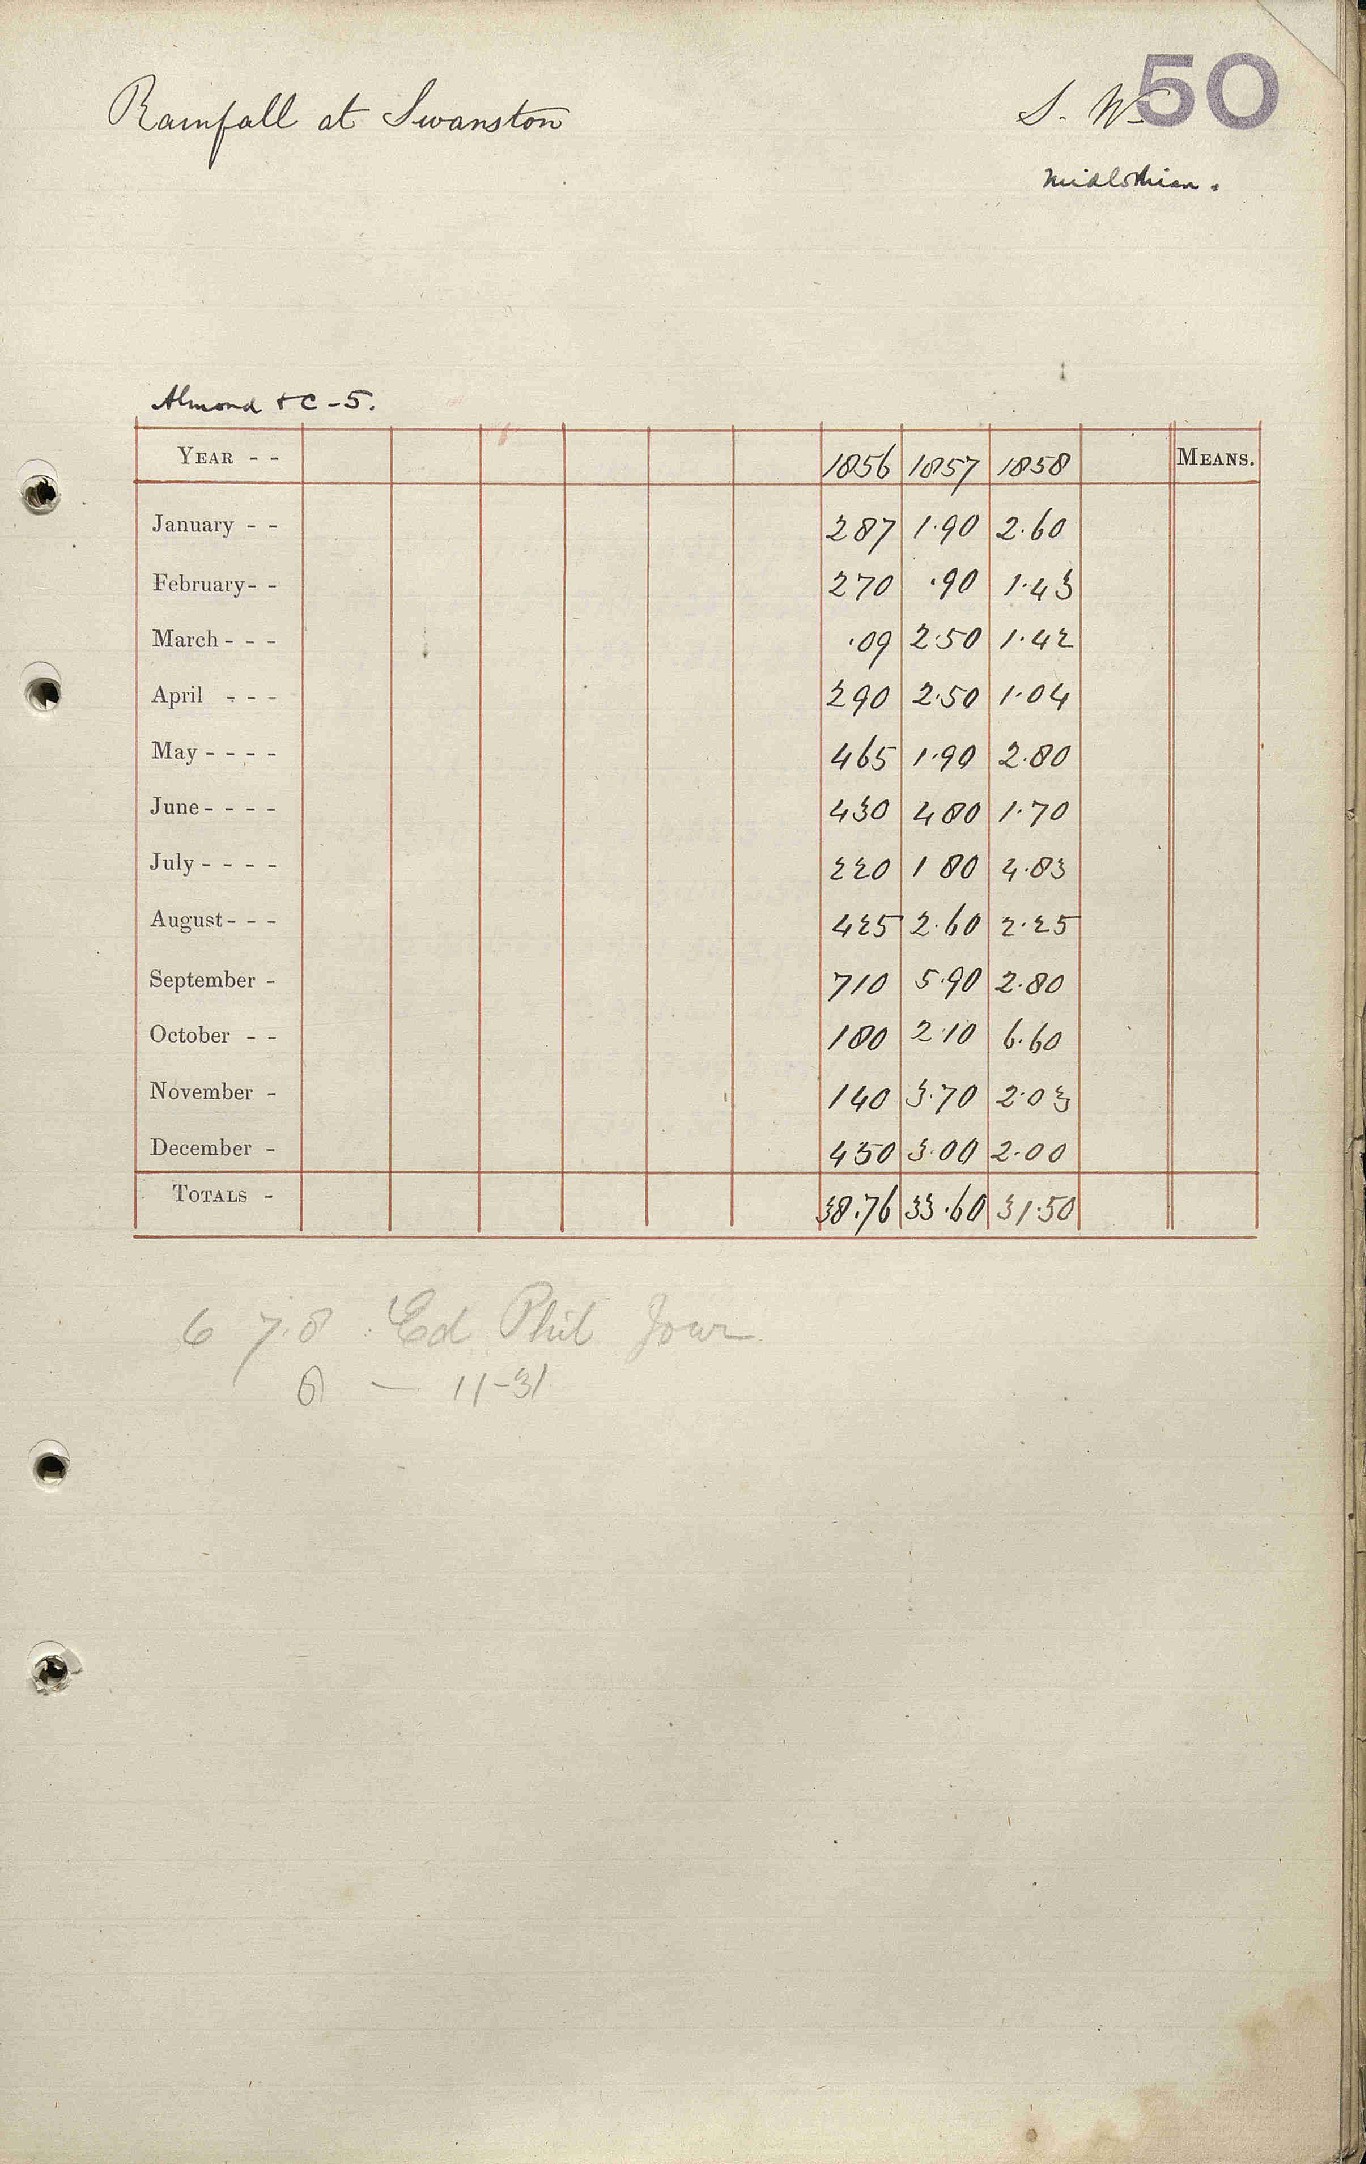 50
Rainfall at Swanston S. W.
Midlothian.
Almond & C - 5.
YEAR - - 1856 1857 1858 MEANS.
January - - 287 1.90 2.60
February - - 270 .90 1.43
March - - - .09 2.50 1.42
April - - - 290 2.50 1.04
May - - - - 465 1.90 2.80
June - - - - 430 480 1.70
July - - - - 220 180 4.83
August - - - 425 2.60 2.25
September - 710 5.90 2.80
October - - 180 2.10 6.60
November - 140 3.70 2.03
December - 450 3.00 2.00
TOTALS - 38.76 33.60 31.50
6 7.8 Ed Phil Jour
— 11-31